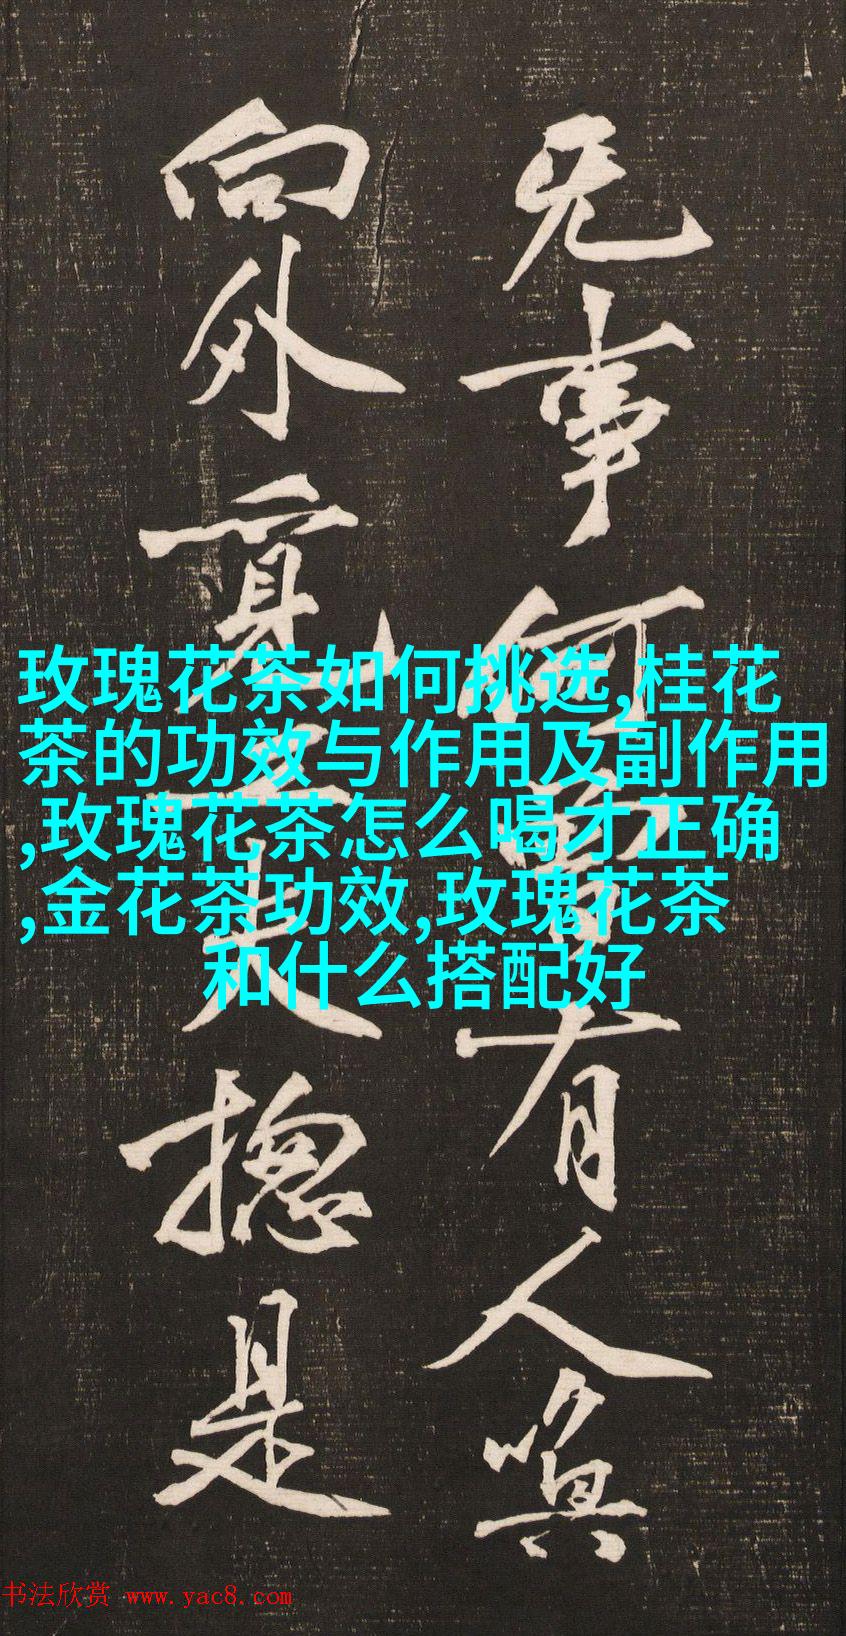 无事何劳有人唤
向外覔
是
玫瑰花茶如何挑选,桂花
茶的功效与作用及副作用
,玫瑰花茶怎么喝才正确
,金花茶功效,玫瑰花茶
和什么搭配好
书法欣赏 www.yac8.com